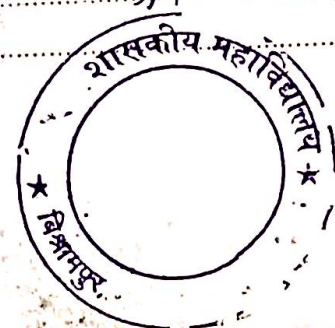 शासकीय महाविद्यालय
★ बिश्रामपुर. ★